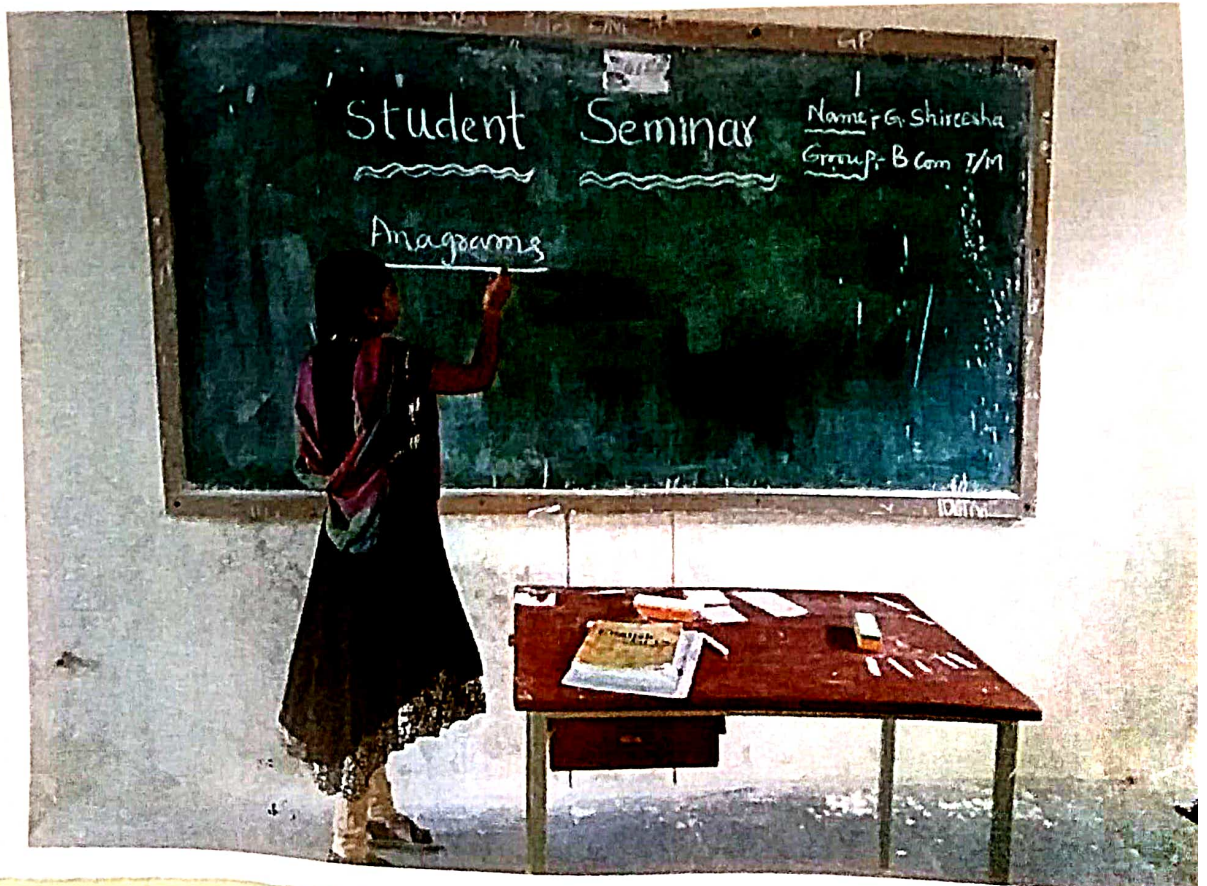 GP
Student Seminar
Name:- G. Shireesha
Group:- B Com T/M
Anagrams